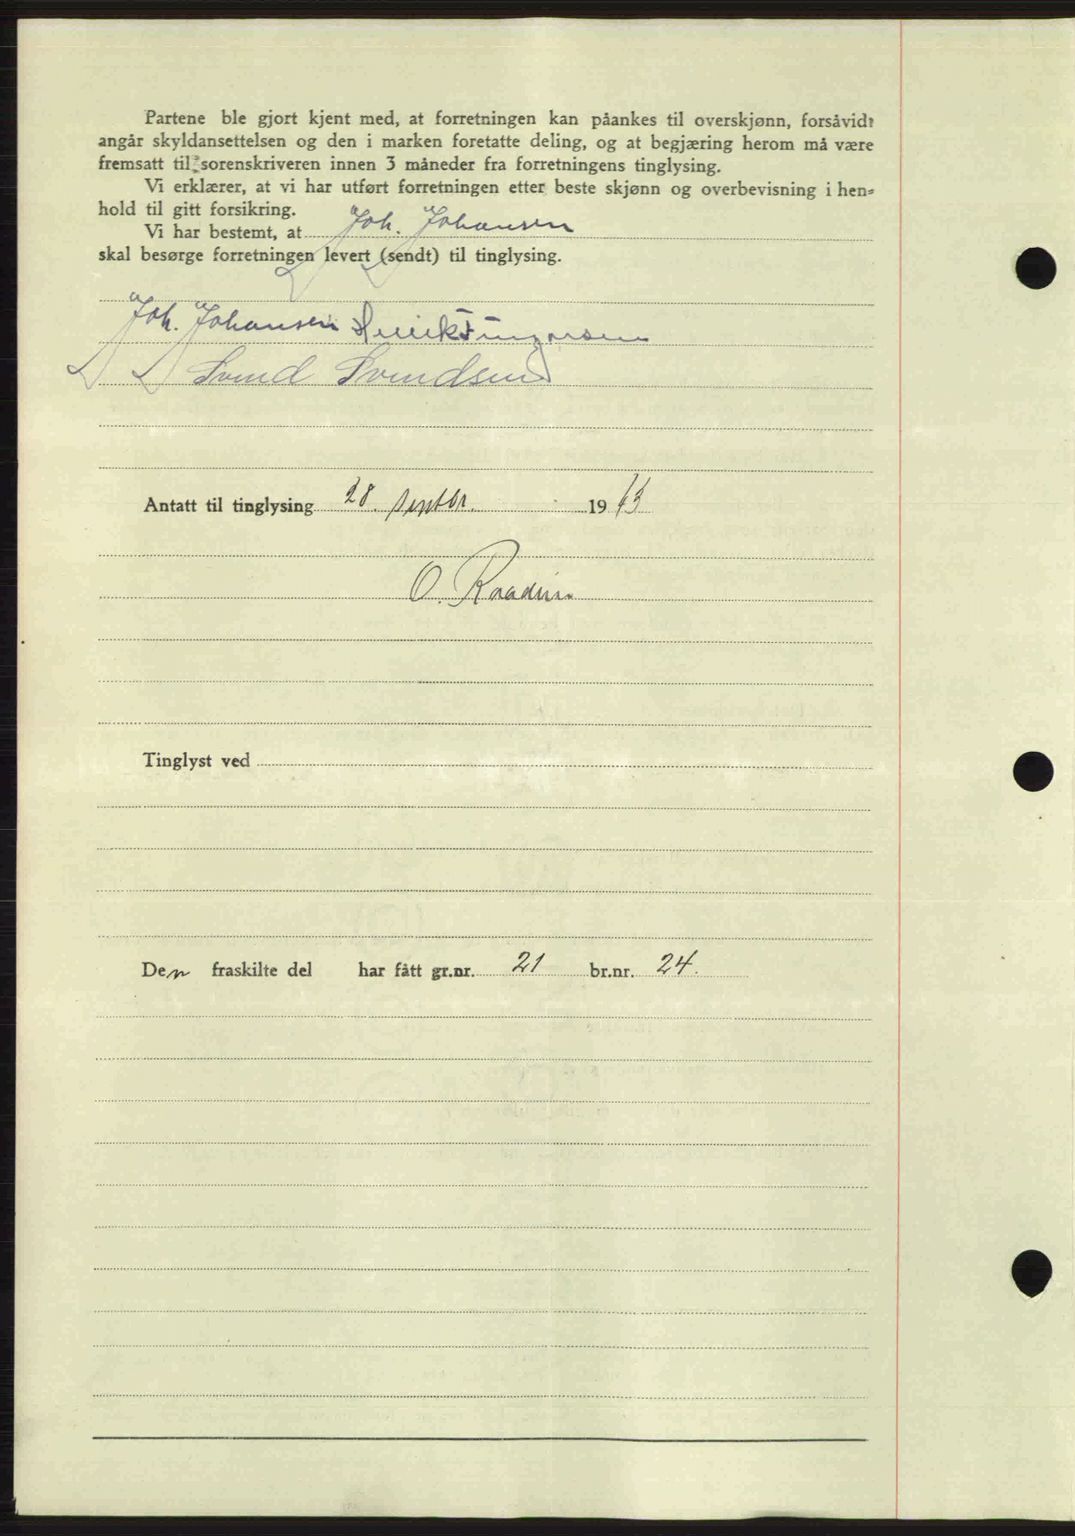 Partene ble gjort kjent med, at forretningen kan påankes til overskjønn, forsåvidt
angår skyldansettelsen og den i marken foretatte deling, og at begjæring herom må være
fremsatt til sorenskriveren innen 3 måneder fra forretningens tinglysing.
Vi erklærer, at vi har utført forretningen etter beste skjønn og overbevisning i hen=
hold til gitt forsikring.
Vi har bestemt, at Joh. Johansen
skal besørge forretningen levert (sendt) til tinglysing.
Joh. Johansen Henrik
Svend Svendsen
Antatt til tinglysing 28. septbr. 1943
O. Raadim
Tinglyst ved
Den fraskilte del har fått gr.nr. 21 br.nr. 24.